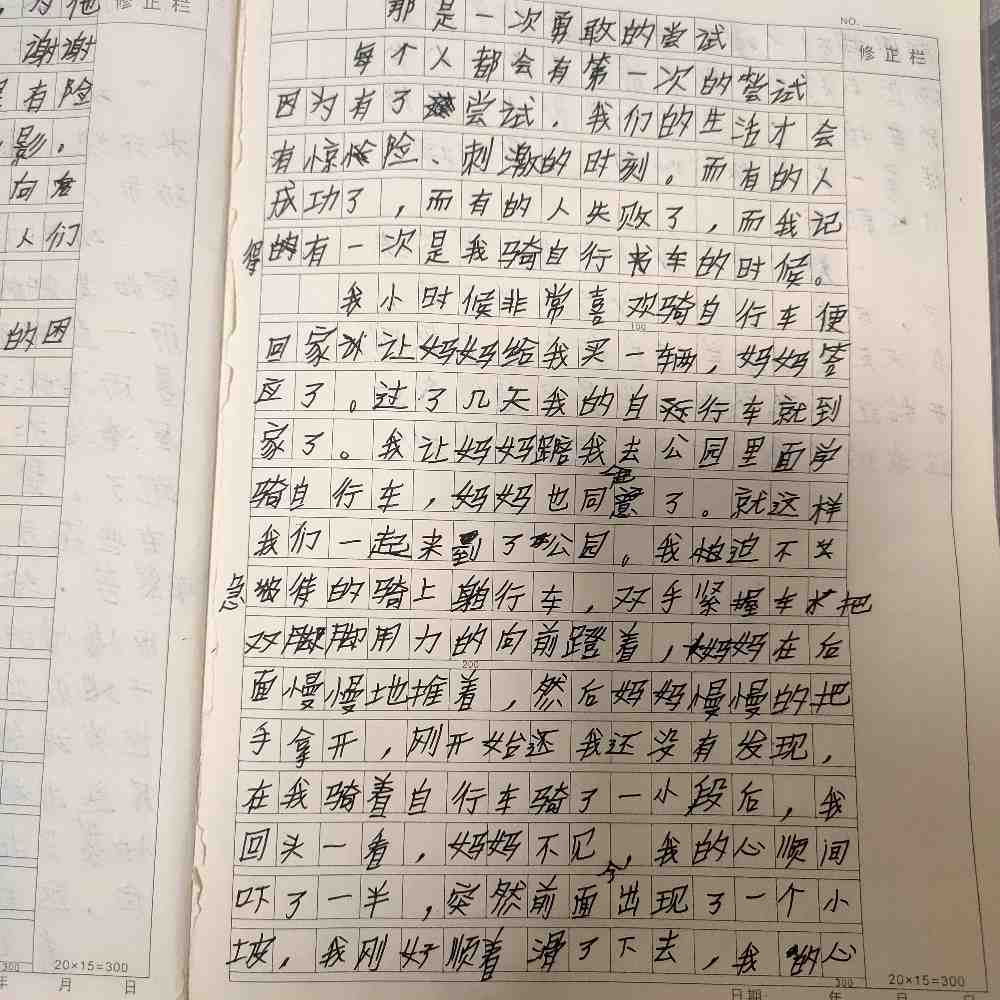 为他
谢谢
有险
影。
向
人们
的困
300
年 月 日
修正栏
20×15=300
NO.
那是一次勇敢的尝试
每个人都会有第一次的尝试
因为有了尝试，我们的生活才会
有惊险、刺激的时刻。而有的人
成功了，而有的人失败了，而我记
得的有一次是我骑自行车的时候。
我小时候非常喜欢骑自行车便
100
回家让妈妈给我买一辆，妈妈答
应了。过了几天我的自行车就到
家了。我让妈妈踣我去公园里面学
骑自行车，妈妈也同意了。就这样
我们一起来到了公园。我迫不
急待的骑上自行车，双手紧握车把
双脚用力的向前蹬着，妈妈在后
200
面慢慢地推着，然后妈妈慢慢的把
手拿开，刚开始还我还没有发现，
在我骑着自行车骑了一小段后，我
回头一看，妈妈不见，我的心顺间
吓了一半，突然前面出现了一个小
坡，我刚好顺着滑了下去，我的心
300
修正栏
20×15=300
日期： 年 月 日